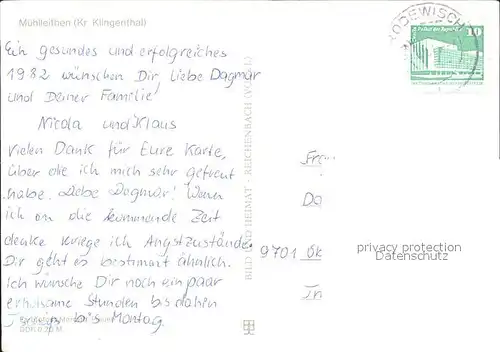 Mühlleithen (Kr. Klingenthal)
Ein gesundes und erfolgreiches
1982 wünschen Dir, liebe Dagmar
und Deiner Familie!
Nicola und Klaus
Vielen Dank für Eure Karte,
über die ich mich sehr gefreut
habe. Liebe Dagmar! Wenn
ich an die kommende Zeit
denke kriege ich Angstzustände
Dir geht es bestimmt ähnlich.
Ich wünsche Dir noch ein paar
erholsame Stunden bis dahin
bis Montag.
BILD UND HEIMAT REICHENBACH
RODEWISCH
10
Da
9701
privacy protection
Dummytext.